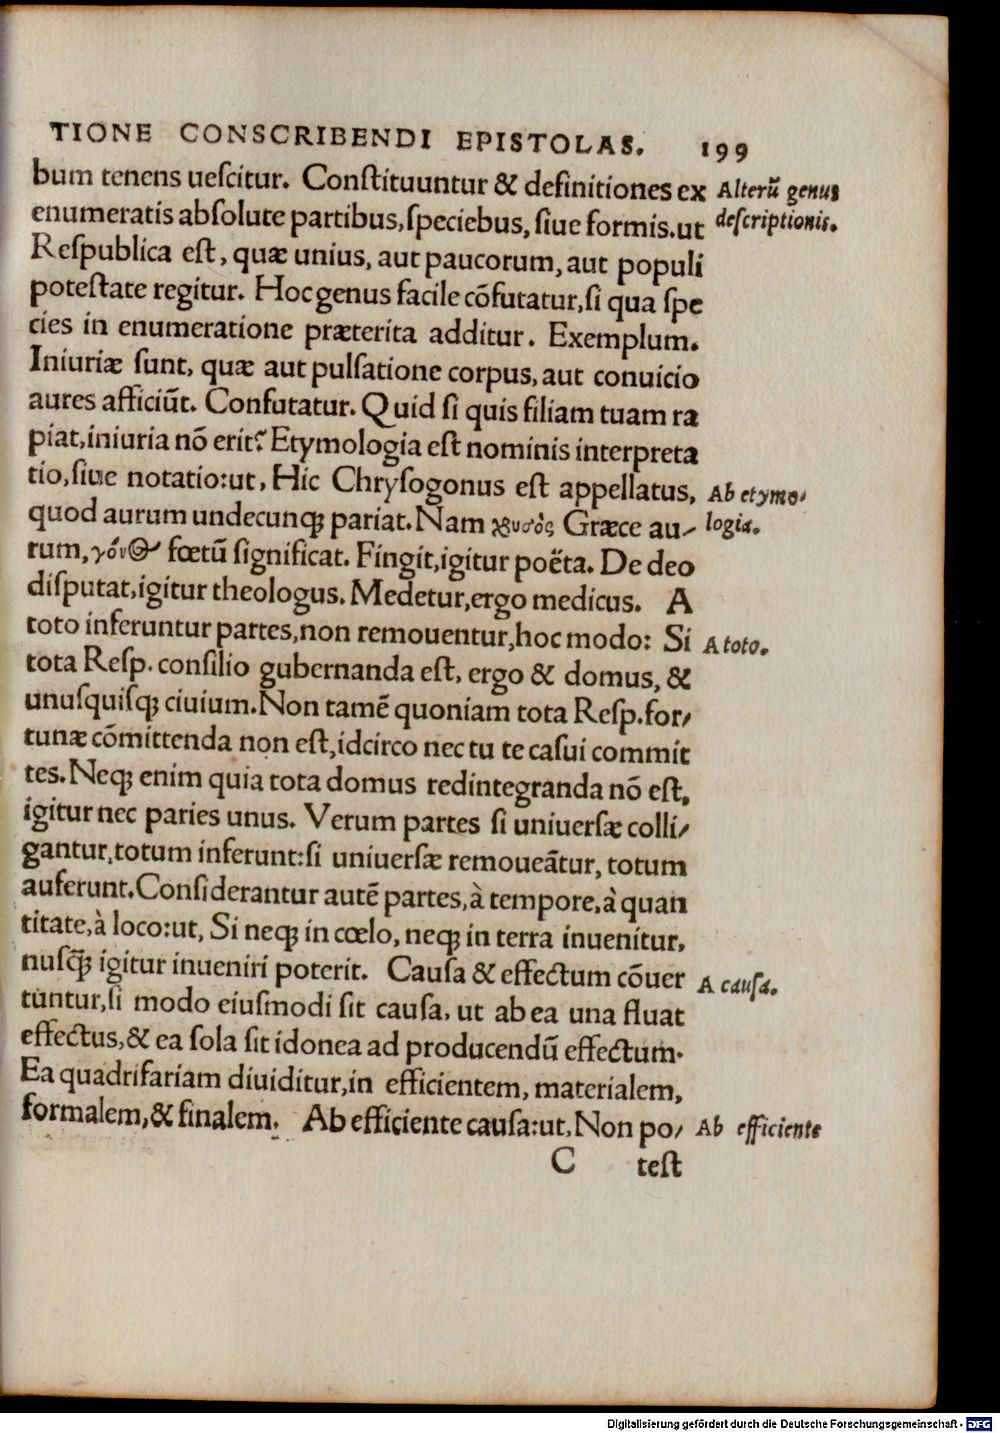 TIONE CONSCRIBENDI EPISTOLAS. 199
bum tenens uescitur. Constituuntur & definitiones ex
Alterũ genus
enumeratis absolute partibus, speciebus, siue formis. ut
descriptionis.
Respublica est, quæ unius, aut paucorum, aut populi
potestate regitur. Hoc genus facile cõfutatur, si qua spe
cies in enumeratione præterita additur. Exemplum.
Iniuriæ sunt, quæ aut pulsatione corpus, aut conuicio
aures afficiũt. Confutatur. Quid si quis filiam tuam ra
piat, iniuria nõ erit? Etymologia est nominis interpreta
tio, siue notatio: ut, Hic Chrysogonus est appellatus,
Ab etymo-
quod aurum undecunq; pariat. Nam χρυσὸς Græce au-
logia.
rum, γόνος fœtũ significat. Fingit, igitur poëta. De deo
disputat, igitur theologus. Medetur, ergo medicus. A
toto inferuntur partes, non remouentur, hoc modo: Si
A toto.
tota Resp. consilio gubernanda est, ergo & domus, &
unusquisq; ciuium. Non tamẽ quoniam tota Resp. for-
tunæ cõmittenda non est, idcirco nec tu te casui commit
tes. Neq; enim quia tota domus redintegranda nõ est,
igitur nec paries unus. Verum partes si uniuersæ colli-
gantur, totum inferunt: si uniuersæ remoueãtur, totum
auferunt. Considerantur autẽ partes, à tempore, à quan
titate, à loco: ut, Si neq; in cœlo, neq; in terra inuenitur,
nusq̃; igitur inueniri poterit. Causa & effectum cõuer
A causa.
tuntur, si modo eiusmodi sit causa, ut ab ea una fluat
effectus, & ea sola sit idonea ad producendũ effectum.
Ea quadrifariam diuiditur, in efficientem, materialem,
formalem, & finalem. Ab efficiente causa: ut, Non po-
Ab efficiente
C test
Digitalisierung gefördert durch die Deutsche Forschungsgemeinschaft - DFG